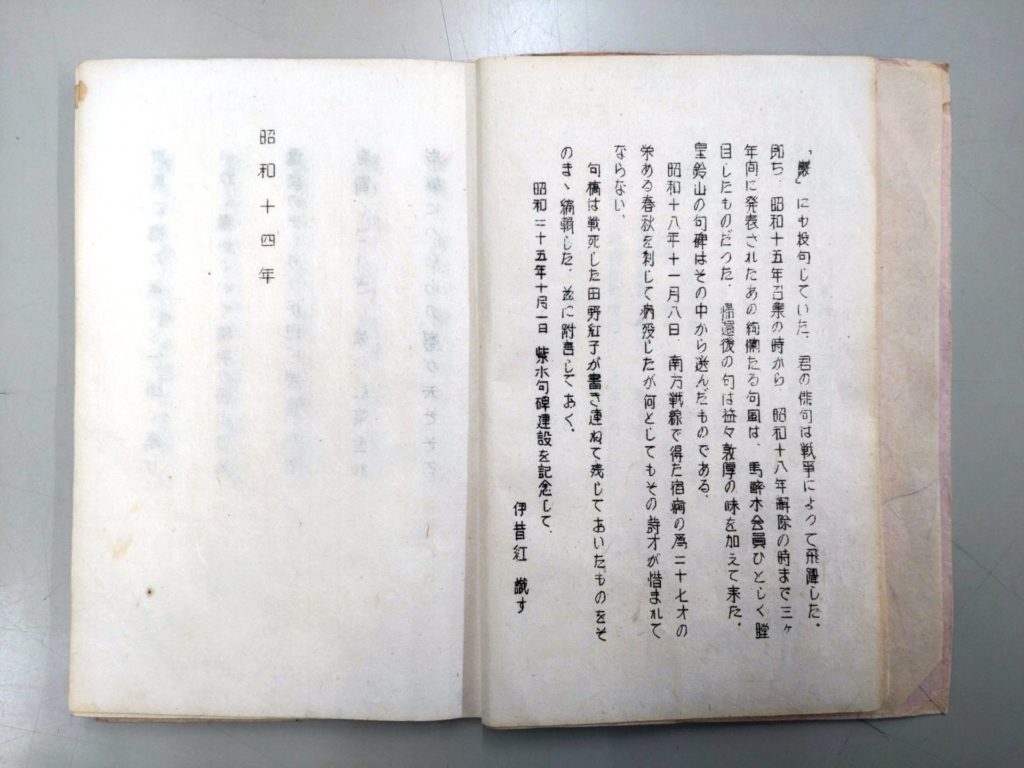 「鬱」にも投句していた。君の俳句は戦爭によって飛躍した。
即ち、昭和十五年召集の時から、昭和十八年解除の時まで三ヶ
年间に発表されたあの絢爛たる句風は、馬酔木会員ひとしく瞠
目したものだった。帰還後の句は益々敦厚の味を加えて来た。
皇鈴山の句碑はその中から選んだものである。
昭和十八年十一月八日、南方戦線で得た宿病の為二十七才の
栄ある春秋を刺して病歿したが何としてもその詩才が惜まれて
ならない。
句稿は戦死した田野紅子が書き連ねて残しておいたものをそ
のまゝ編輯した。玆に附言しておく。
昭和二十五年十月一日 柴水句碑建設を記念して、
伊昔紅 識す
昭和十四年